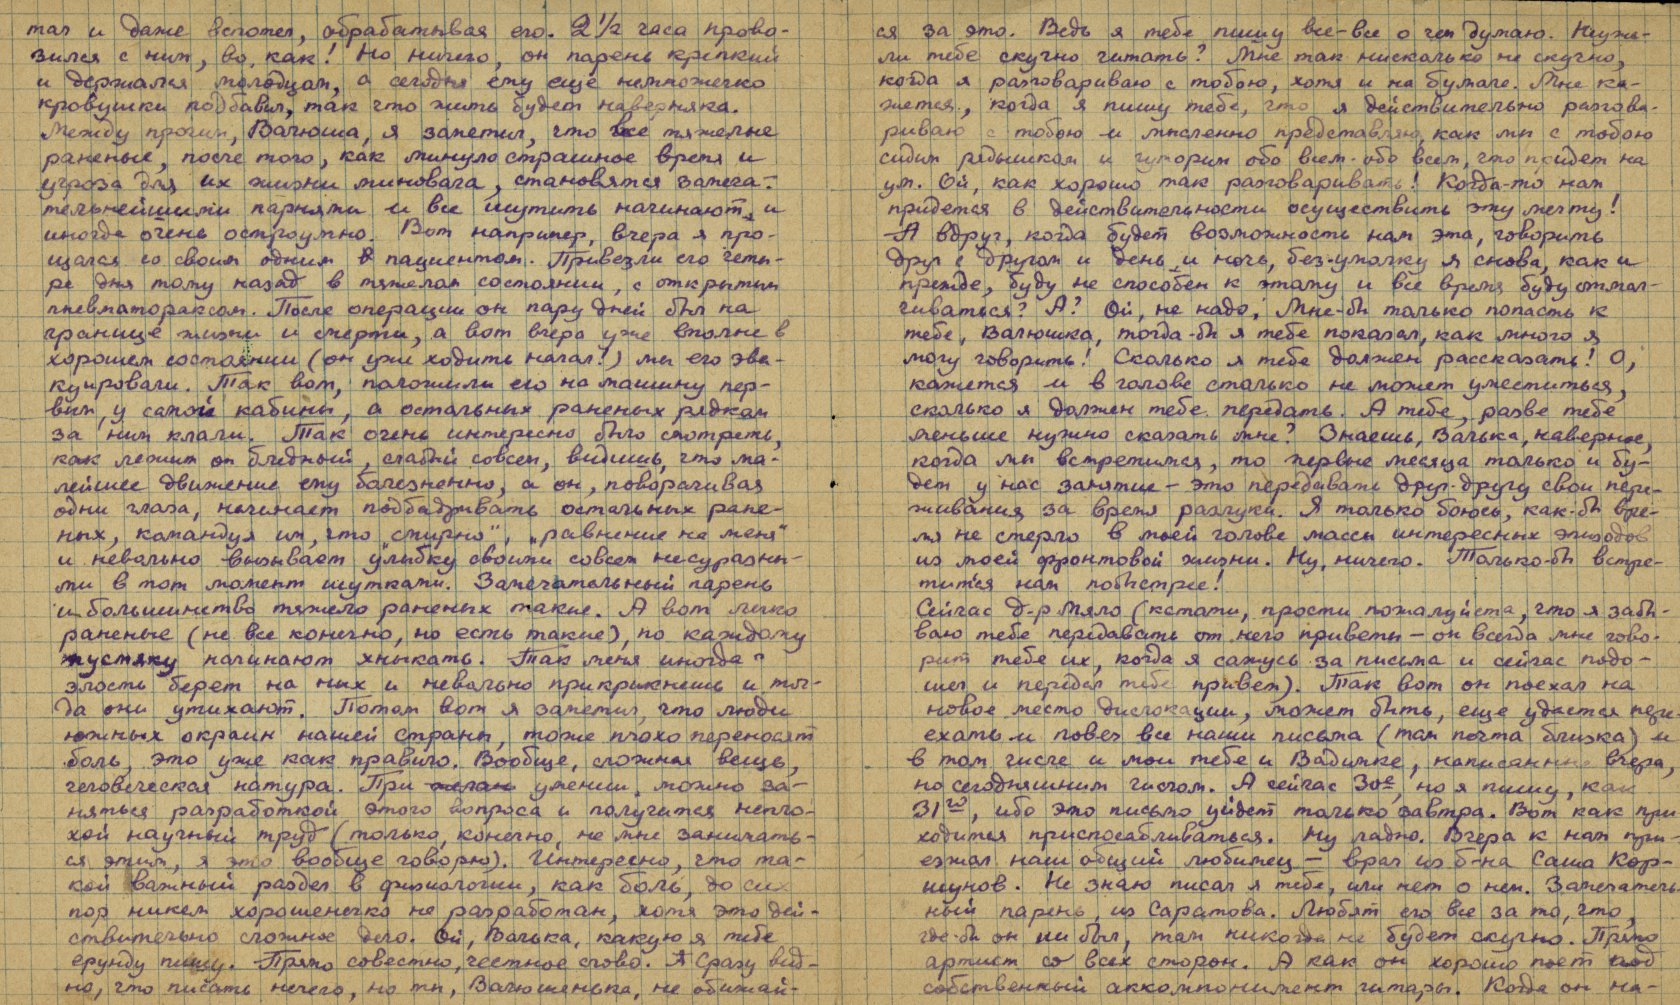 тал и даже вспотел, обрабатывая его. 2 1/2 часа прово-
зился с ним, во, как! Но ничего, он парень крепкий
и держался молодцом, а сегодня ему еще немножечко
кровушки подбавил, так что жить будет наверняка.
Между прочим, Валюша, я заметил, что все тяжелые
раненые, после того, как минуло страшное время и
угроза для их жизни миновала, становятся замеча-
тельнейшими парнями и все шутить начинают, и
иногда очень остроумно. Вот например, вчера я про-
щался со своим одним пациентом. Привезли его четы-
ре дня тому назад в тяжелом состоянии, с открытым
пневматораксом. После операции он пару дней был на
границе жизни и смерти, а вот вчера уже вполне в
хорошем состоянии (он уже ходить начал!) мы его эва-
куировали. Так вот, положили его на машину пер-
вым, у самой кабины, а остальных раненых рядком
за ним клали. Так очень интересно было смотреть,
как лежит он бледный, слабый совсем, видишь, что ма-
лейшее движение ему болезненно, а он, поворачивая
одни глаза, начинает подбадривать остальных ране-
ных, командуя им, что „смирно", „равнение на меня"
и невольно вызывает улыбку своими совсем несуразны-
ми в тот момент шутками. Замечательный парень
и большинство тяжело раненых такие. А вот легко
раненые (не все конечно, но есть такие), по каждому
пустяку начинают хныкать. Так меня иногда
злость берет на них и невольно прикрикнешь и тог-
да они утихают. Потом вот я заметил, что люди
южных окраин нашей страны, тоже плохо переносят
боль, это уже как правило. Вообще, сложная вещь,
человеческая натура. При умении, можно за-
няться разработкой этого вопроса и получится непло-
хой научный труд (только, конечно, не мне занимать-
ся этим, я это вообще говорю). Интересно, что та-
кой важный раздел в физиологии, как боль, до сих
пор никем хорошенечко не разработан, хотя это дей-
ствительно сложное дело. Ой, Валька, какую я тебе
ерунду пишу. Прямо совестно, честное слово. Сразу вид-
но, что писать нечего, но ты, Валюшенька, не обижай-
ся за это. Ведь я тебе пишу все-все о чем думаю. Неуже-
ли тебе скучно читать? Мне так нисколько не скучно,
когда я разговариваю с тобою, хотя и на бумаге. Мне ка-
жется, когда я пишу тебе, что я действительно разгова-
риваю с тобою и мысленно представляю, как мы с тобою
сидим рядышком и гуторим обо всем-обо всем, что придет на
ум. Ой, как хорошо так разговаривать! Когда-то нам
придется в действительности осуществить эту мечту!
А вдруг, когда будет возможность нам эта, говорить
друг с другом и день и ночь, без-умолку я снова, как и
прежде, буду не способен к этому и все время буду отмал-
чиваться? А? Ой, не надо! Мне-бы только попасть к
тебе, Валюшка, тогда-бы я тебе показал, как много я
могу говорить! Сколько я тебе должен рассказать! О,
кажется и в голове столько не может уместиться,
сколько я должен тебе передать. А тебе, разве тебе
меньше нужно сказать мне? Знаешь, Валька, наверное,
когда мы встретимся, то первые месяца только и бу-
дет у нас занятие – это передавать друг-другу свои пере-
живания за время разлуки. Я только боюсь, как-бы вре-
мя не стерло в моей голове массы интересных эпизодов
из моей фронтовой жизни. Ну, ничего. Только-бы встре-
титься нам побыстрее!
Сейчас д-р Мяло (кстати, прости пожалуйста, что я забы-
ваю тебе передавать от него приветы – он всегда мне гово-
рит тебе их, когда я сажусь за письма и сейчас подо-
шел и передал тебе привет). Так вот он поехал на
новое место дислокации, может быть, еще удастся пере-
ехать и повез все наши письма (там почта близка) и
в том числе и мои тебе и Вадимке, написанные вчера,
но сегодняшним числом. А сейчас 30е, но я пишу, как
31го, ибо это письмо уйдет только завтра. Вот как при-
ходится приспосабливаться. Ну ладно. Вчера к нам при-
езжал наш общий любимец – врач из б-на Саша Кор-
шунов. Не знаю писал я тебе, или нет о нем. Замечатель-
ный парень, из Саратова. Любят его все за то, что,
где-бы он ни был, там никогда не будет скучно. Прямо
артист со всех сторон. А как он хорошо поет под
собственный аккомпонимент гитары. Когда он на-